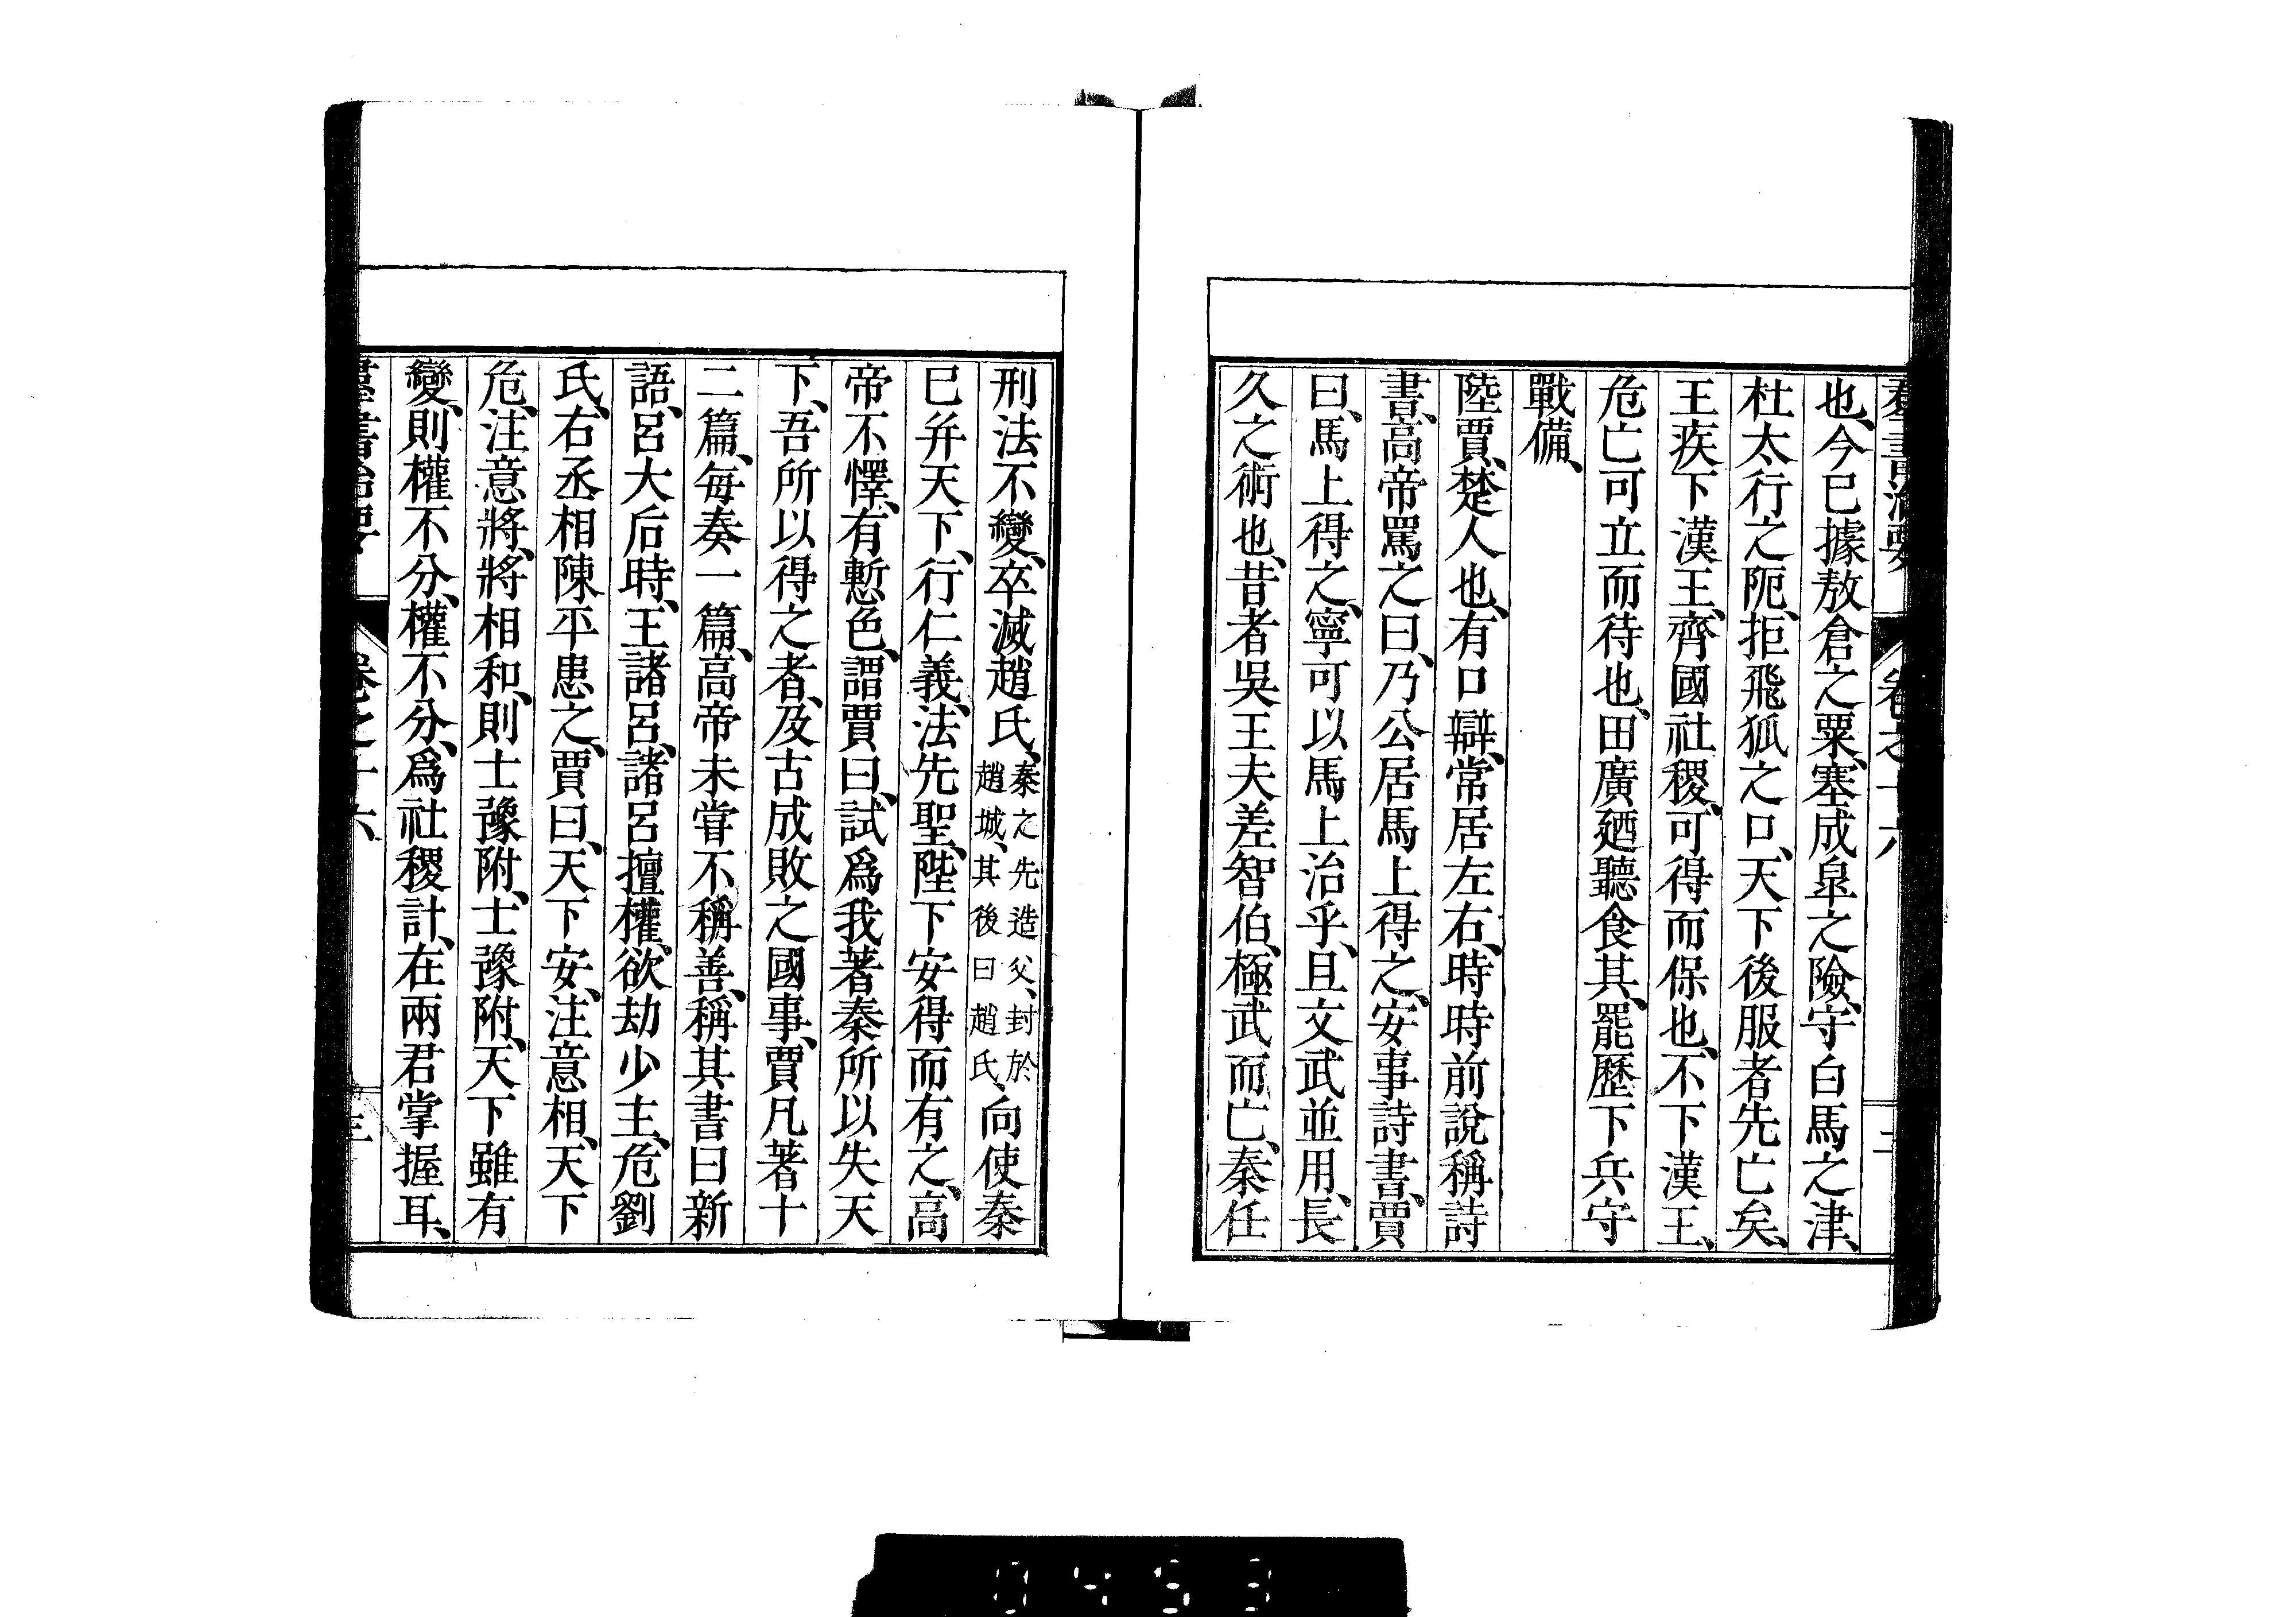 羣書治要 卷之十六 二
也、今已據敖倉之粟、塞成皐之險、守白馬之津、
杜太行之阨、拒飛狐之口、天下後服者先亡矣、
王疾下漢王、齊國社稷、可得而保也、不下漢王、
危亡可立而待也、田廣廼聽食其、罷歷下兵守
戰備、
陸賈、楚人也、有口辯、常居左右、時時前說稱詩
書、高帝罵之曰、乃公居馬上得之、安事詩書、賈
曰、馬上得之、寧可以馬上治乎、且文武並用、長
久之術也、昔者吳王夫差智伯、極武而亡、秦任
刑法不變、卒滅趙氏、秦之先造父、封於趙城、其後曰趙氏、向使秦
已幷天下、行仁義、法先聖、陛下安得而有之、高
帝不懌、有慙色、謂賈曰、試爲我著秦所以失天
下、吾所以得之者、及古成敗之國事、賈凡著十
二篇、每奏一篇、高帝未甞不稱善、稱其書曰新
語、呂大后時、王諸呂、諸呂擅權、欲劫少主、危劉
氏、右丞相陳平患之、賈曰、天下安、注意相、天下
危、注意將、將相和、則士豫附、士豫附、天下雖有
變、則權不分、權不分、爲社稷計、在兩君掌握耳、
羣書治要 卷之十六 三
0453